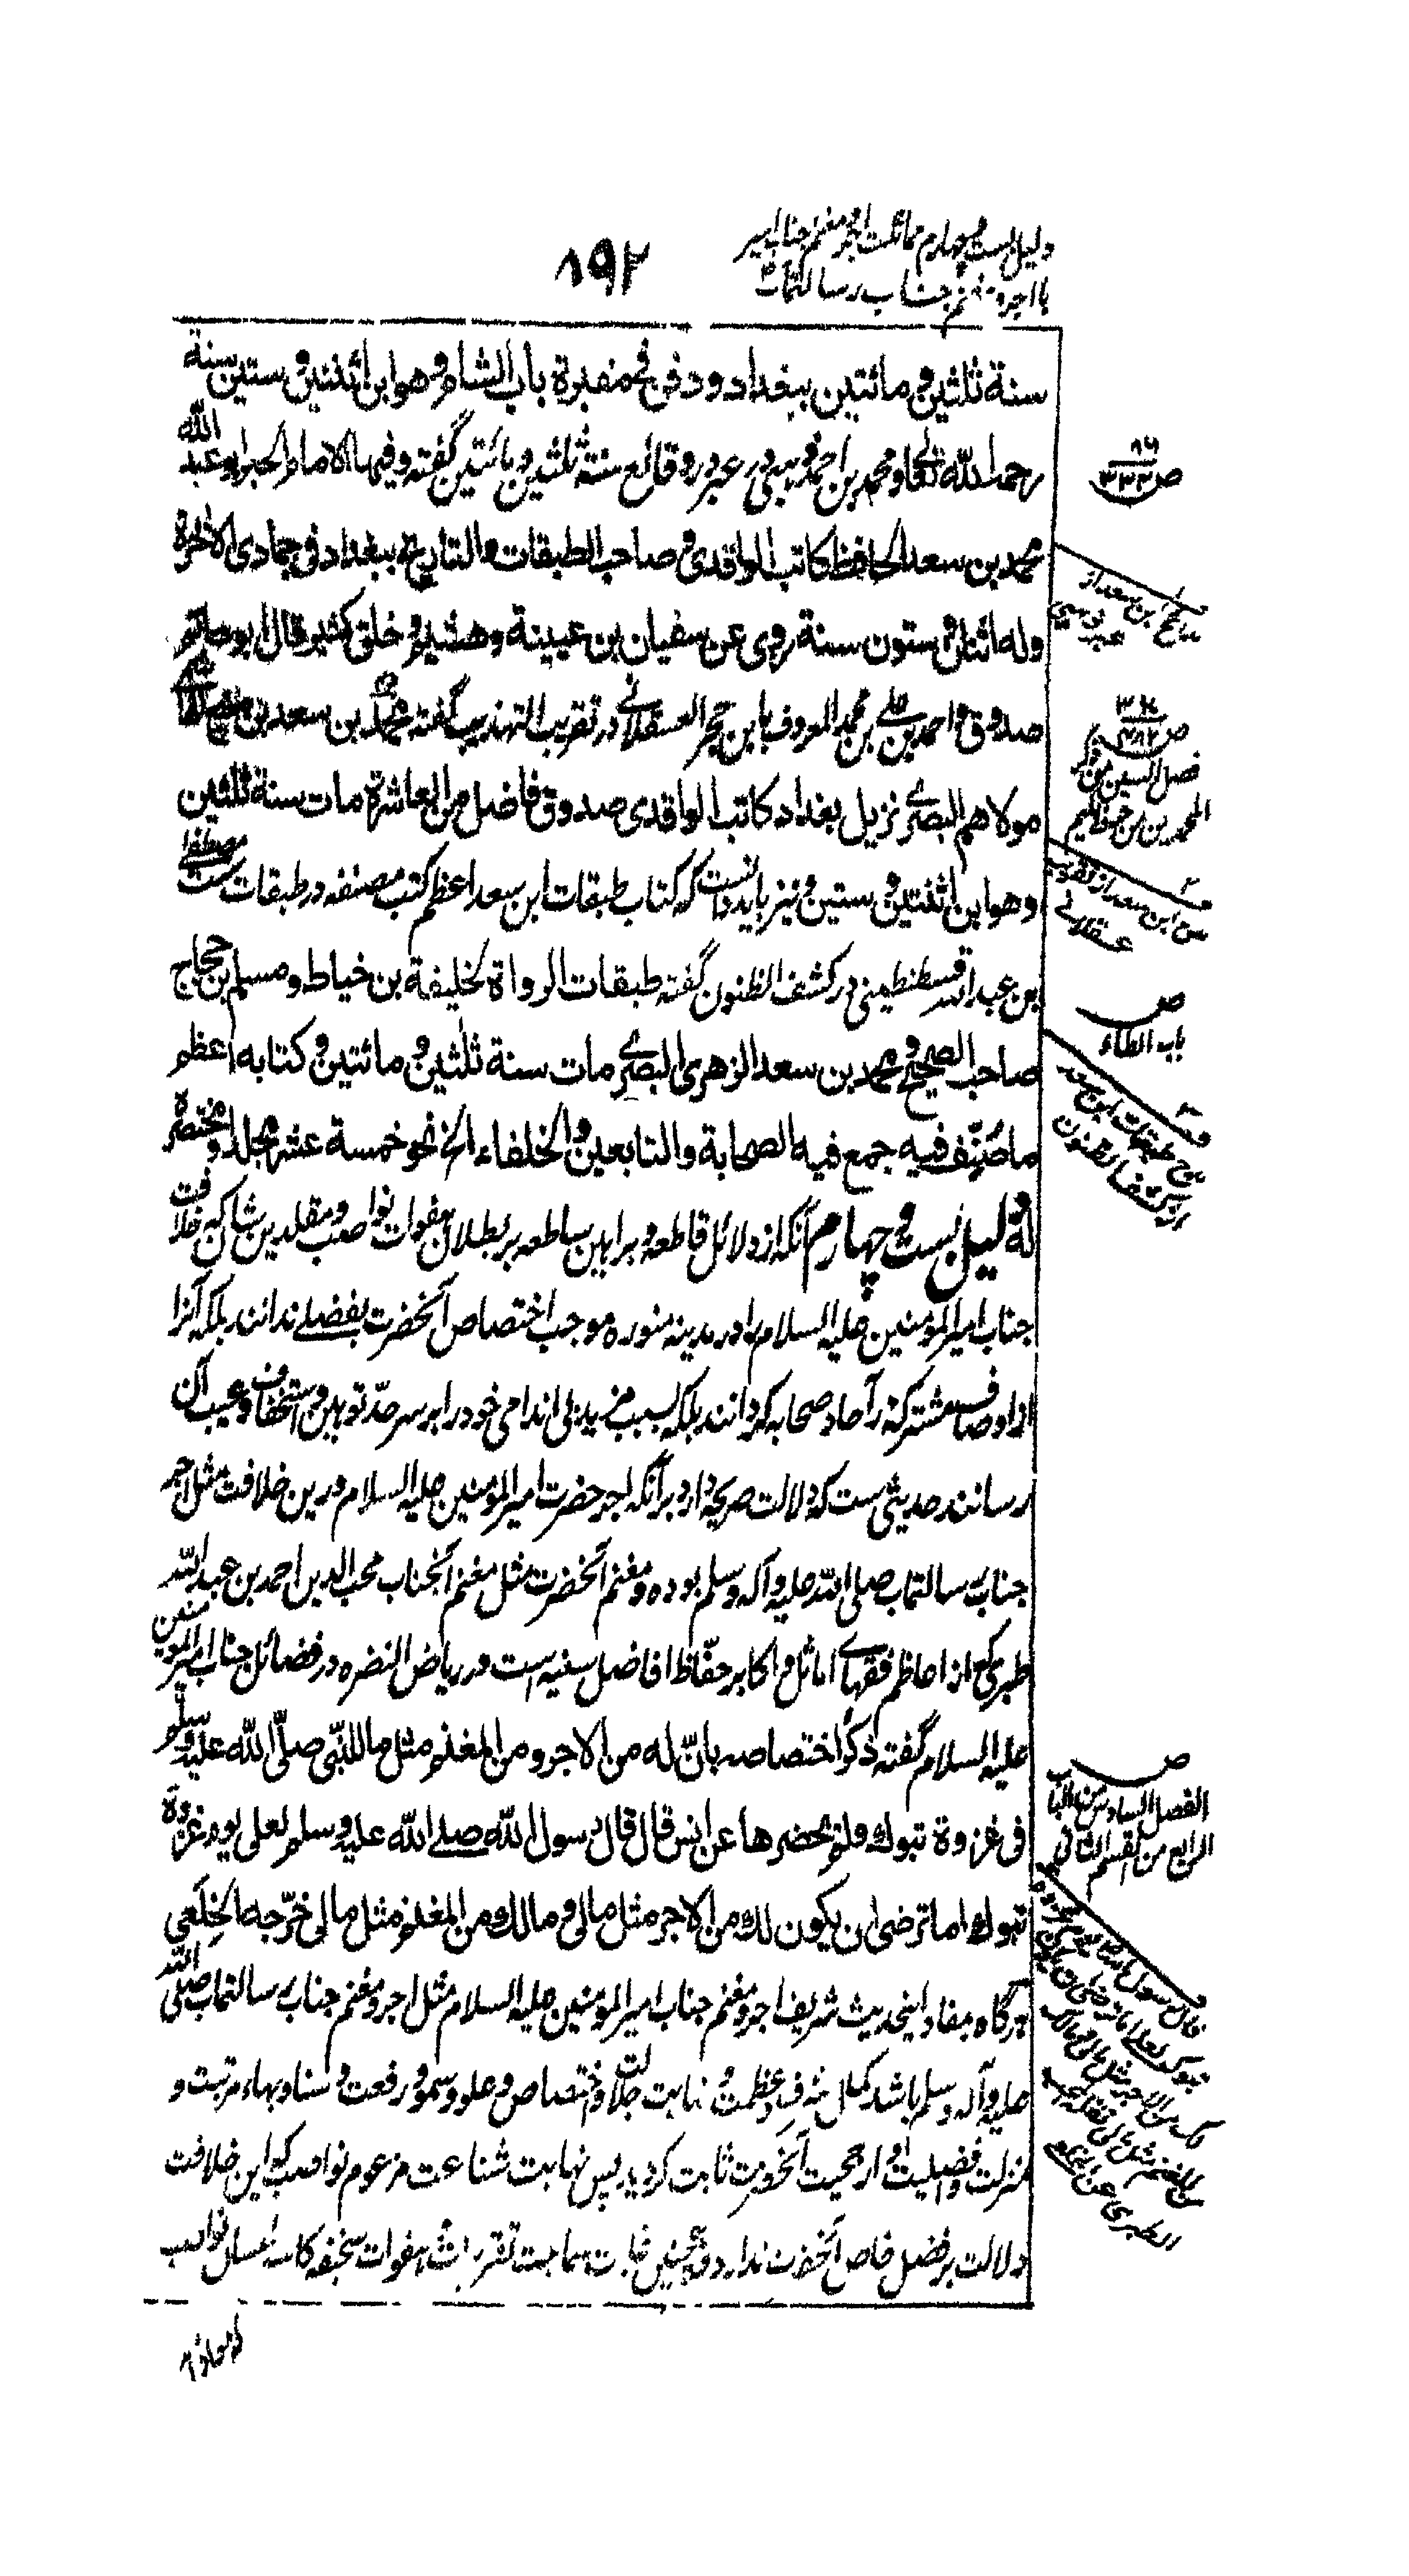 دلیل بست و چهارم مماثلت اجر و مغنم جناب امیر
با اجر و مغنم جناب رسالتمآب
۸۹۲
سنة ثلثين و مائتين ببغداد و دفن فی مقبرة باب الشام و هو ابن اثنتين و ستين سنة
رحمه الله تعالى و محمد بن احمد ذهبی در عبر در وقائع سنة ثلثين و مائتين گفته و فيها الامام الحبر ابو عبد الله
محمد بن سعد الحافظ كاتب الواقدی و صاحب الطبقات و التاريخ ببغداد فی جمادى الاخرة
وله اثنان و ستون سنة روى عن سفيان بن عيينة و هشيم و خلق كثير قال ابو حاتم
صدوق و احمد بن علی بن محمد المعروف بابن حجر العسقلانی در تقریب التهذیب گفته محمد بن سعد بن منيع الهاشمی
مولاهم البصری نزیل بغداد كاتب الواقدی صدوق فاضل من العاشرة مات سنة ثلثين
و هو ابن اثنتين و ستين و نیز باید دانست که کتاب طبقات ابن سعد اعظم کتب مصنفه در طبقات ست مصطفی
بن عبد الله قسطنطینی در کشف الظنون گفته طبقات الرواة لخليفة بن خياط و مسلم بن حجاج
صاحب الصحيح و محمد بن سعد الزهرى البصرى مات سنة ثلثين و مائتين و كتابه اعظم
ما صنّف فيه جمع فيه الصحابة و التابعين و الخلفاء الخ نحو خمسة عشر مجلدا و مختصره
دلیل بست و چهارم آنکه از دلائل قاطعه و براهین ساطعه بر بطلان هفوات نواصب و مقلدین شان که خلافت
جناب امیر المؤمنین علیه السلام را در مدینه منوره موجب اختصاص آنحضرت بفضلے ندانند بلکه آنرا
از اوصاف مشترکه در آحاد صحابه گردانند بلکه بسبب مزید بی اندامی خود را بر سر حدّ توهین و استخفاف و عیب آن
رسانند حدیثی ست که دلالت صریحه دارد بر آنکه اجر حضرت امیر المؤمنین علیه السلام درین خلافت مثل اجر
جناب رسالتماب صلی الله علیه و آله و سلم بوده و مغنم آنحضرت مثل مغنم آنجناب محب الدین احمد بن عبد الله
طبری که از اعاظم فقهای اماثل و اکابر حفّاظ افاضل سنیه است در ریاض النضره در فضائل جناب امیر المؤمنین
علیه السلام گفته ذكر اختصاصه بانّ له من الاجر و من المغنم مثل ما للنبّی صلّى الله عليه وسلم
فی غزوة تبوك و لم يحضرها عن انس قال قال رسول الله صلے الله عليه و سلم لعلی يوم غزوة
تبوك اما ترضى ان يكون لك من الاجر مثل مالی و مالك من المغنم مثل مالی خرّجه الخلعی
هرگاه مفاد اینحدیث شریف اجر و مغنم جناب امیر المؤمنین علیه السلام مثل اجر و مغنم جناب رسالتماب صلی الله
علیه و آله و سلم باشد کمال شرف و عظمت و نهایت جلالت و اختصاص و علو و سمو و رفعت و سنا و بهاء مرتبت و
منزلت و افضلیت و ارجحیت آنحضرت ثابت گردید پس نهایت شناعت مزعوم نواصب که این خلافت
دلالت بر فضل خاص آنحضرت ندارد و همچنین غایت سماجت تقریرات هفوات سخیفه کاسه لیسان نواصب
ص
۳۳۳
مدح ابن سعد از
عبر ذهبی
ص
فصل السین من ذکر
المحمدین من حرف المیم
مدح ابن سعد از تقریب
عسقلانی
ص
باب الطاء
مدح طبقات ابن سعد
از کشف الظنون
ص
الفصل السادس من الباب
الرابع من القسم الثانی